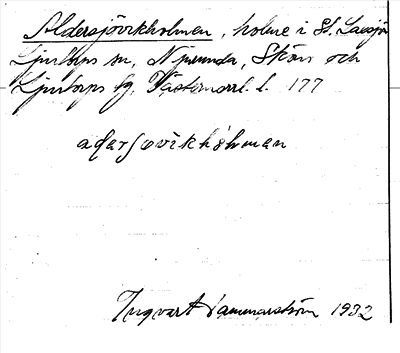 Aldersjövikholmen, holme i St. Laxsjön
Ljustorps sn, Njurunda, Sköns och
Ljustorps tg, Västernorrl. l. 177
aḍarʃovikhòlman
Ingvart Hammarström 1932